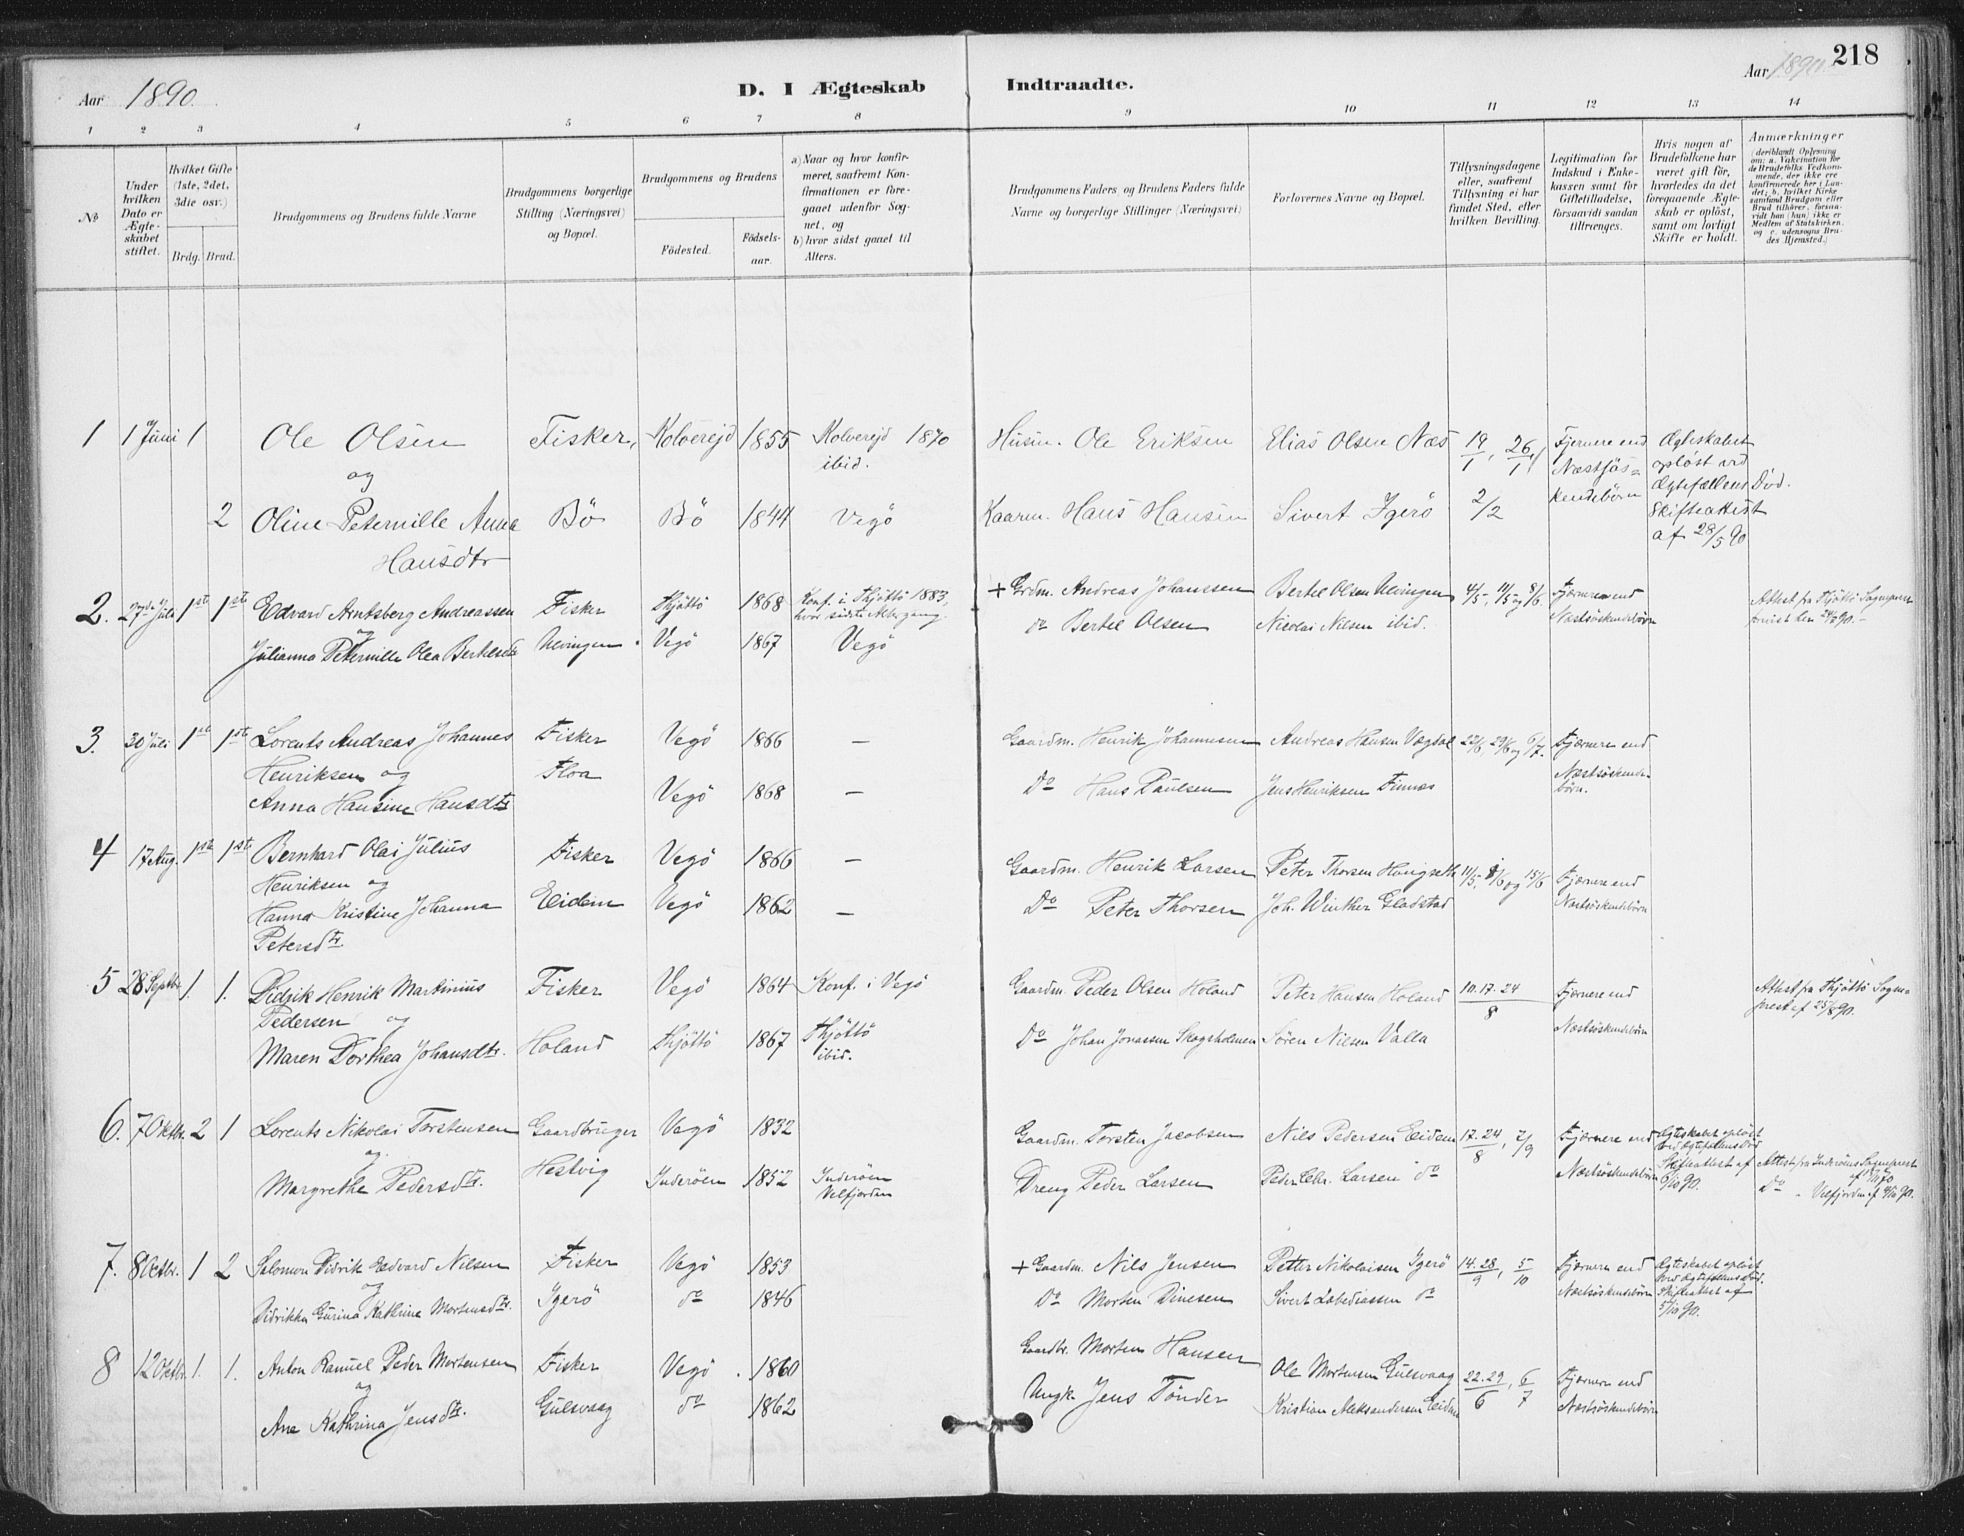 Aar 1890.
D. I Ægteskab Indtraadte.
Aar 1890. 218
1 2 3 4 5 6 7 8 9 10 11 12 13 14
№
Under hvilken Dato er Ægteskabet stiftet.
Hvilket Gifte (1ste, 2det, 3die osv.)
Brdg. Brud.
Brudgommens og Brudens fulde Navne
Brudgommens borgerlige Stilling (Næringsvei) og Bopæl.
Brudgommens og Brudens
Födested. Födselsaar.
a) Naar og hvor konfirmeret, saafremt Konfirmationen er foregaaet udenfor Sognet, og
b) hvor sidst gaaet til Alters.
Brudgommens Faders og Brudens Faders fulde Navne og borgerlige Stillinger (Næringsvei)
Forlovernes Navne og Bopæl.
Tillysningsdagene eller, saafremt Tillysning ei har fundet Sted, efter hvilken Bevilling.
Legitimation for Indskud i Enkekassen samt for Giftetilladelse, forsaavidt saadan tiltrænges.
Hvis nogen af Brudefolkene har været gift før, hvorledes da det foregaaende Ægteskab er opløst, samt om lovligt Skifte er holdt.
Anmærkninger (deriblandt Oplysning om: a. Vakcination for de Brudefolks Vedkommende, der ikke ere konfirmerede her i Landet; b. hvilket Kirkesamfund Brudgom eller Brud tilhører, forsaavidt han (hun) ikke er Medlem af Statskirken, og c. udensogns Brudes Hjemsted.)
1 1 Juni 1 Ole Olsen Fisker, Kolvereid 1855 Kolvereid 1870 ibid. Husm. Ole Eriksen Elias Olsen Næs 19/1, 26/1, Fjernere end Næstsöskendebörn Ægteskabet opløst ved Ægtefællens Död. Skifteattest af 28/5 90
og
2 Oline Peternille Anna Hansdtr Bö Bö 1844 Vegö Kaarm. Hans Hansen Sivert Igerö 2/2
2. 27de Juli 1ste 1ste Edvard Arntsberg Andreassen Fisker Thjöttö 1868 Konf. i Thjöttö 1883, hvor sidste Altergang. + Grdm. Andreas Johanssen Bertel Olsen Nevingen 4/5, 11/5 og 8/6 Fjernere end Næstsöskendebörn Attest fra Thjöttö Sognepræst
og
Julianna Peternille Olea Bertelsd. Nevingen Vegö 1867 Vegö do Bertel Olsen Nicolai Nilsen ibid.
3. 30 Juli 1ste 1ste Lorents Andreas Johannes Fisker Vegö 1866 — Gaardm. Henrik Johannesen Andreas Hansen Vægdal 22/6, 29/6 og 6/7. Fjernere end Næstsöskendebörn.
Henriksen og Floa
Anna Hansine Hansdtr Vegö 1868 — Do Hans Paulsen Jens Henriksen Finnes
4 17 Aug. 1ste 1ste Bernhard Olai Julius Fisker Vegö 1866 — Gaardm. Henrik Larsen Peter Thorsen Hongseth 11/5, 8/6 og 15/6 Fjernere end Næstsöskendebörn
Henriksen og
Hanna Kristine Johanna Petersdtr. Eidem Vegö 1862 — Do Peter Thorsen Joh. Winther Gladstad
5 28 Septbr. 1. 1. Didrik Henrik Martinius Fisker Vegö 1864 Konf. i Vegö Gaardm. Peder Olsen Holand Peter Hansen Holand 10. 17. 24/8 Fjernere end Næstsöskendebörn Attest fra Thjöttö Sognepræst af 25/8 90.
Pedersen og
Maren Dorthea Johansdtr. Holand Thjöttö 1867 Thjöttö ibid. Do Johan Jonassen Skogsholmen Sören Nilsen Valla
6. 7 Oktbr. 2 1 Lorents Nikolai Torstensen Gaardbruger Vegö 1832 Gaardm. Torsten Jacobsen Nils Pedersen Eidem 17. 24/8, 7/9 Fjernere end Næstsöskendebörn Ægteskabet oplöst ved Ægtefællens Död Skifteattest af 6/10 90.
og
Margrethe Pedersdtr. Hestvig Inderöen 1852 Inderöen Velfjorden Dreng Peder Larsen Peder Chr. Larsen do Attest fra Inderöens Sognepræst af 11/11 70 Do " Velfjorden af 4/10 90.
7. 8 Octbr. 1 2 Salomon Didrik Edvard Nilsen Fisker Vegö 1853 + Gaardm. Nils Jensen Petter Nikolaisen Igerö 14. 28/9, 5/10 Fjernere end Næstsöskendebörn Ægteskabet oplöst ved Ægtefællens Död. Skifteattest af 5/10 90.
og
Didrikka Gurina Kathrine Mortensdtr. Igerö do 1846 Do Morten Dinesen Sivert Zebediassen do
8 12 Oktbr. 1. 1. Anton Ranuel Peder Mortensen Fisker Vegö 1860 Gaardbr. Morten Hansen Ole Mortensen Gulsvaag 22. 29/6, 6/7 Fjernere end Næstsöskendebörn
og
Ane Kathrina Jensdtr. Gulsvaag do 1862 Ungk. Jens Tönder Kristian Aleksandersen Eidem